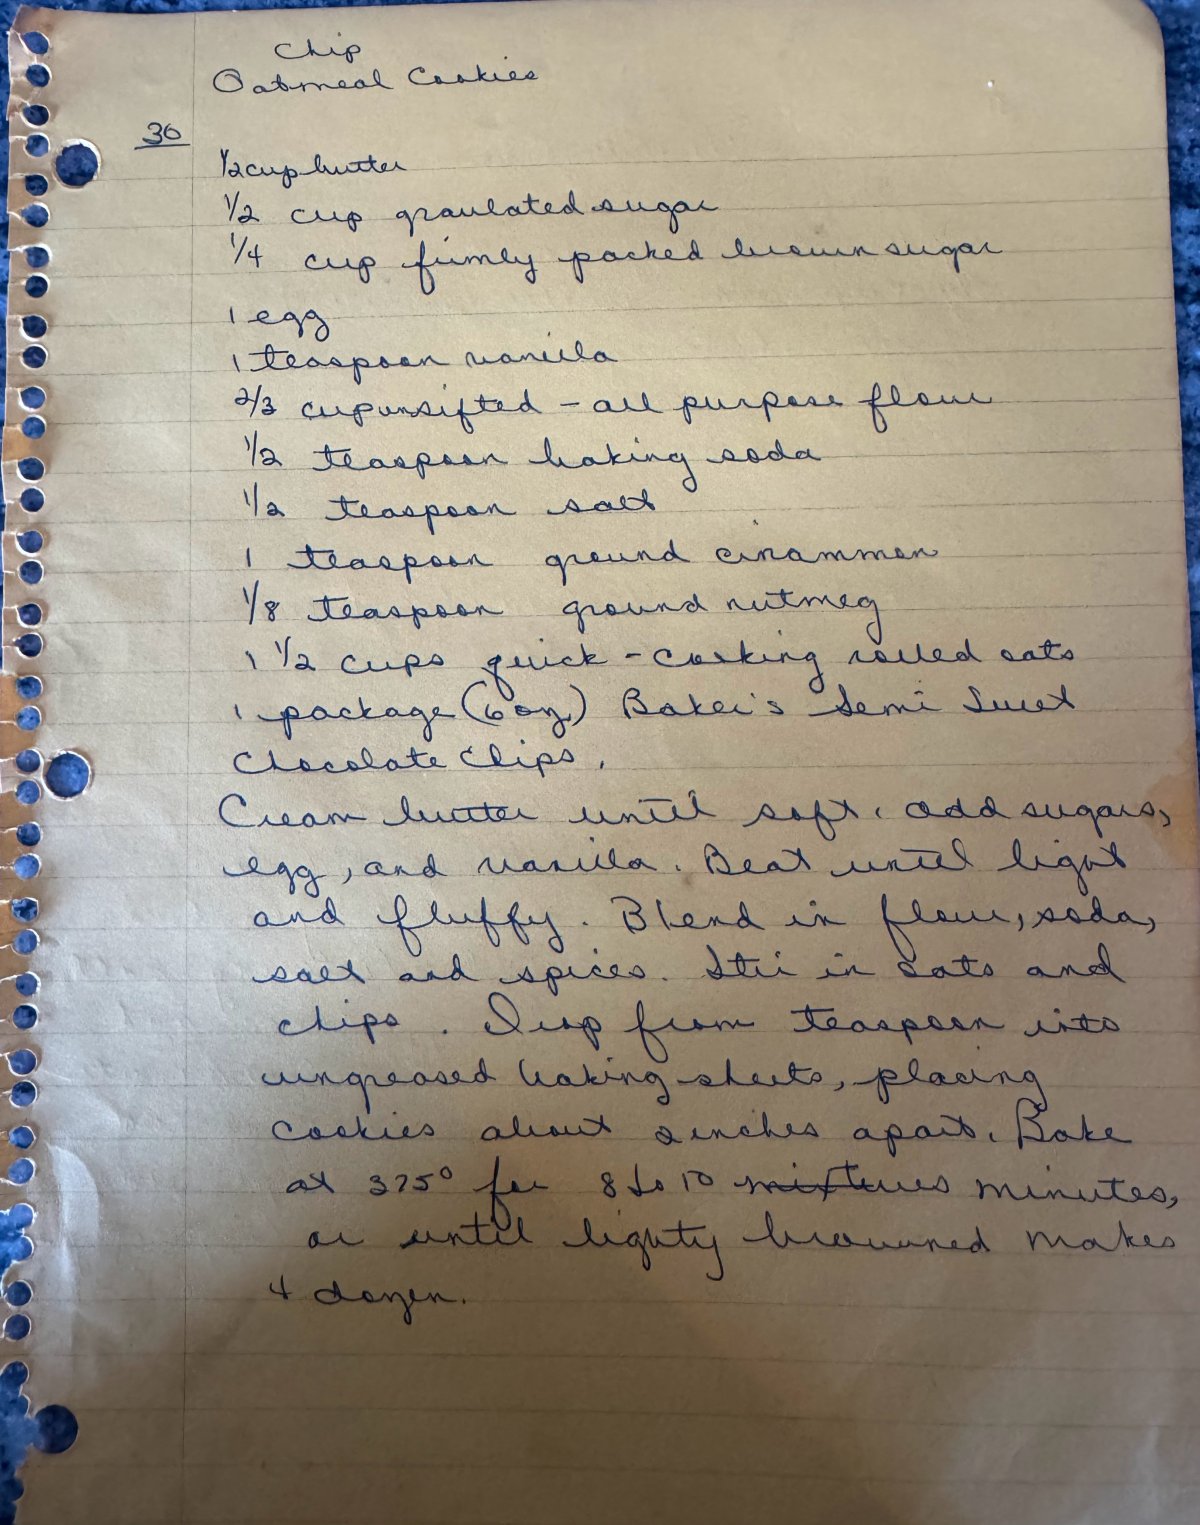 Chip
Oatmeal Cookies
30
1/2 cup butter
1/2 cup graulated sugar
1/4 cup firmly packed brown sugar
1 egg
1 teaspoon vanilla
2/3 cup unsifted - all purpose flour
1/2 teaspoon baking soda
1/2 teaspoon salt
1 teaspoon ground cinammon
1/8 teaspoon ground nutmeg
1 1/2 cups quick - cooking rolled oats
1 package (6 oz) Baker's Semi Sweet
Chocolate Chips.
Cream butter until soft. add sugars,
egg, and vanilla. Beat until light
and fluffy. Blend in flour, soda,
salt and spices. Stir in oats and
chips. Drop from teaspoon into
ungreased baking sheets, placing
cookies about 2 inches apart. Bake
at 375° for 8 to 10 mixtures minutes,
or until lighty browned makes
4 dozen.